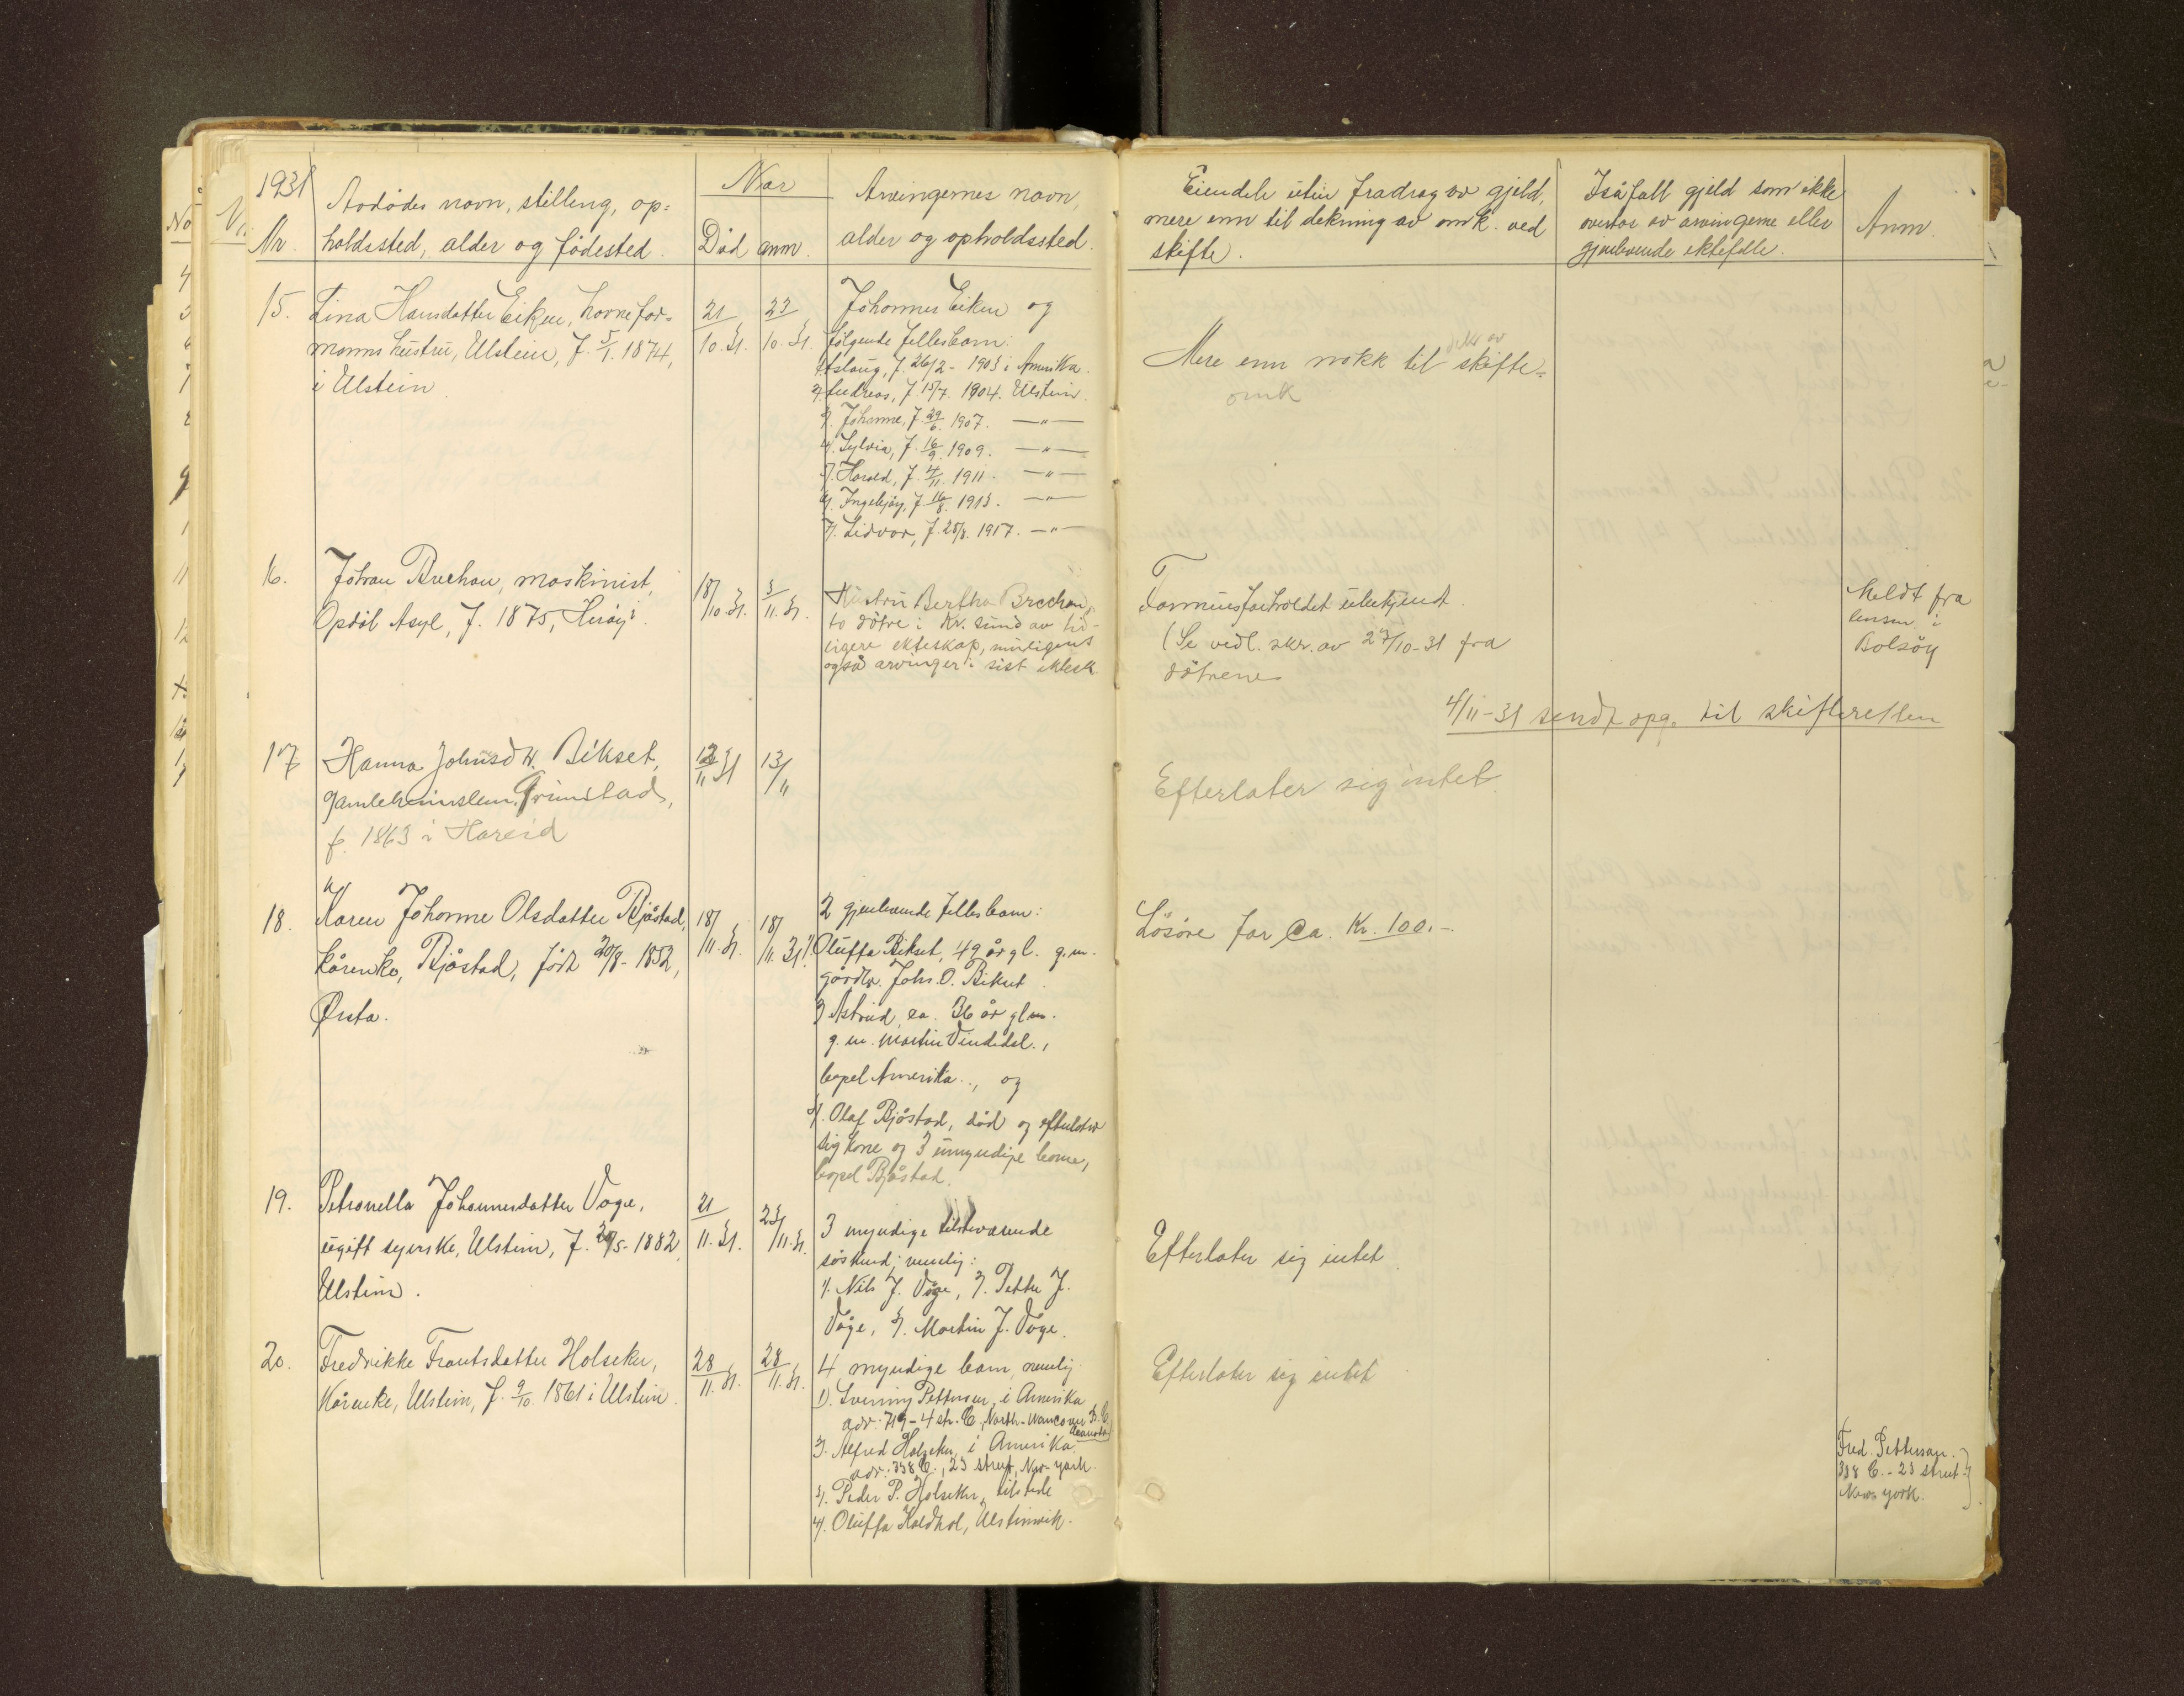 1931
Nr.
Avdødes navn, stilling, op=
holdssted, alder og fødested.
Når
Død anm.
Arvingernes navn,
alder og opholdssted.
Eiendele uten fradrag av gjeld,
mere enn til dekning av omk. ved
skifte.
I så fall gjeld som ikke
overtas av arvingerne eller
gjenlevende ektefelle.
Anm.
15. Lina Hansdatter Eiken, havnefor=
manns hustru, Ulstein, f. 5/1. 1874,
i Ulstein
21/10.31. 22/10.31
Johannes Eiken og
følgende fellesbarn:
Aslaug, f. 26/2 - 1903 i Amerika
2) Andreas, f 15/7. 1904. Ulstein.
3). Johanne, f. 29/6. 1907. —"—
4). Sylvia, f. 16/9. 1909. —"—
5). Harald, f. 4/11. 1911. —"—
6). Ingebjørg, f. 16/8. 1913. —"—
7). Lidvar, f. 25/8. 1917. —"—
Mere enn nokk til dekn av skifte=
omk
16. Johan Brechan, maskinist,
Opdøl Asyl, f. 1875, Herøy.
18/10.31. 3/11.31.
Hustru Bertha Brechan,
to døtre i Kr. sund av tid-
ligere ekteskap, muligens
også arvinger i sist ektesk.
Formuesforholdet ubekjendt.
(Se vedl. skr. av 27/10-31 fra
døtrene
Meldt fra
lensm. i
Bolsøy
4/11-31 sendt opg. til skifteretten
17 Hanna Johnsdtr. Bikset,
gamleheimslem, Grimstad,
f. 1863 i Hareid
12/11 31 13/11
Efterlater sig intet
18. Karen Johanne Olsdatter Bjåstad,
kårenke, Bjåstad, født 20/8 - 1852,
Ørsta.
18/11.31. 18/11.31.
2 gjenlevende fellesbarn:
1) Oluffa Bikset, 49 år gl. g.m.
gårdbr. Johs. O. Bikset.
2) Astrid, ca. 36 år glm.
g. m. Martin Vindedal.,
bopel Amerika.., og
3). Olaf Bjåstad, død og efterlater
sig kone og 3 umyndige barn,
bopel Bjåstad.
Løsøre for ca. Kr. 100.-
19. Petronella Johannesdatter Våge,
ugift syerske, Ulstein, f. 20/5 - 1882
Ulstein.
21/11.31. 23/11.31.
3 myndige tilstevæende
søskend, nemlig:
1). Nils J. Våge, 2). Petter J.
Våge, 3). Martin J. Våge.
Efterlater sig intet.
20. Fredrikke Frantsdatter Holseker,
Kårenke, Ulstein, f. 9/10. 1861 i Ulstein.
28/11.31. 28/11.31.
4 myndige barn, nemlig:
1). Sverning Pettersen, i Amerika
adr: 719 - 4 str. E. North-Wancover B. C.
(Canada)
2). Alfred Holseker, i Amerika,
adr: 338 E., 23 street, New-york.
3). Peder P. Holseker, tilstede
4). Oluffa Haldhol, Ulsteinvik.
Efterlater sig intet.
Fred. Petterson.
338 E. - 23 street -
New york.